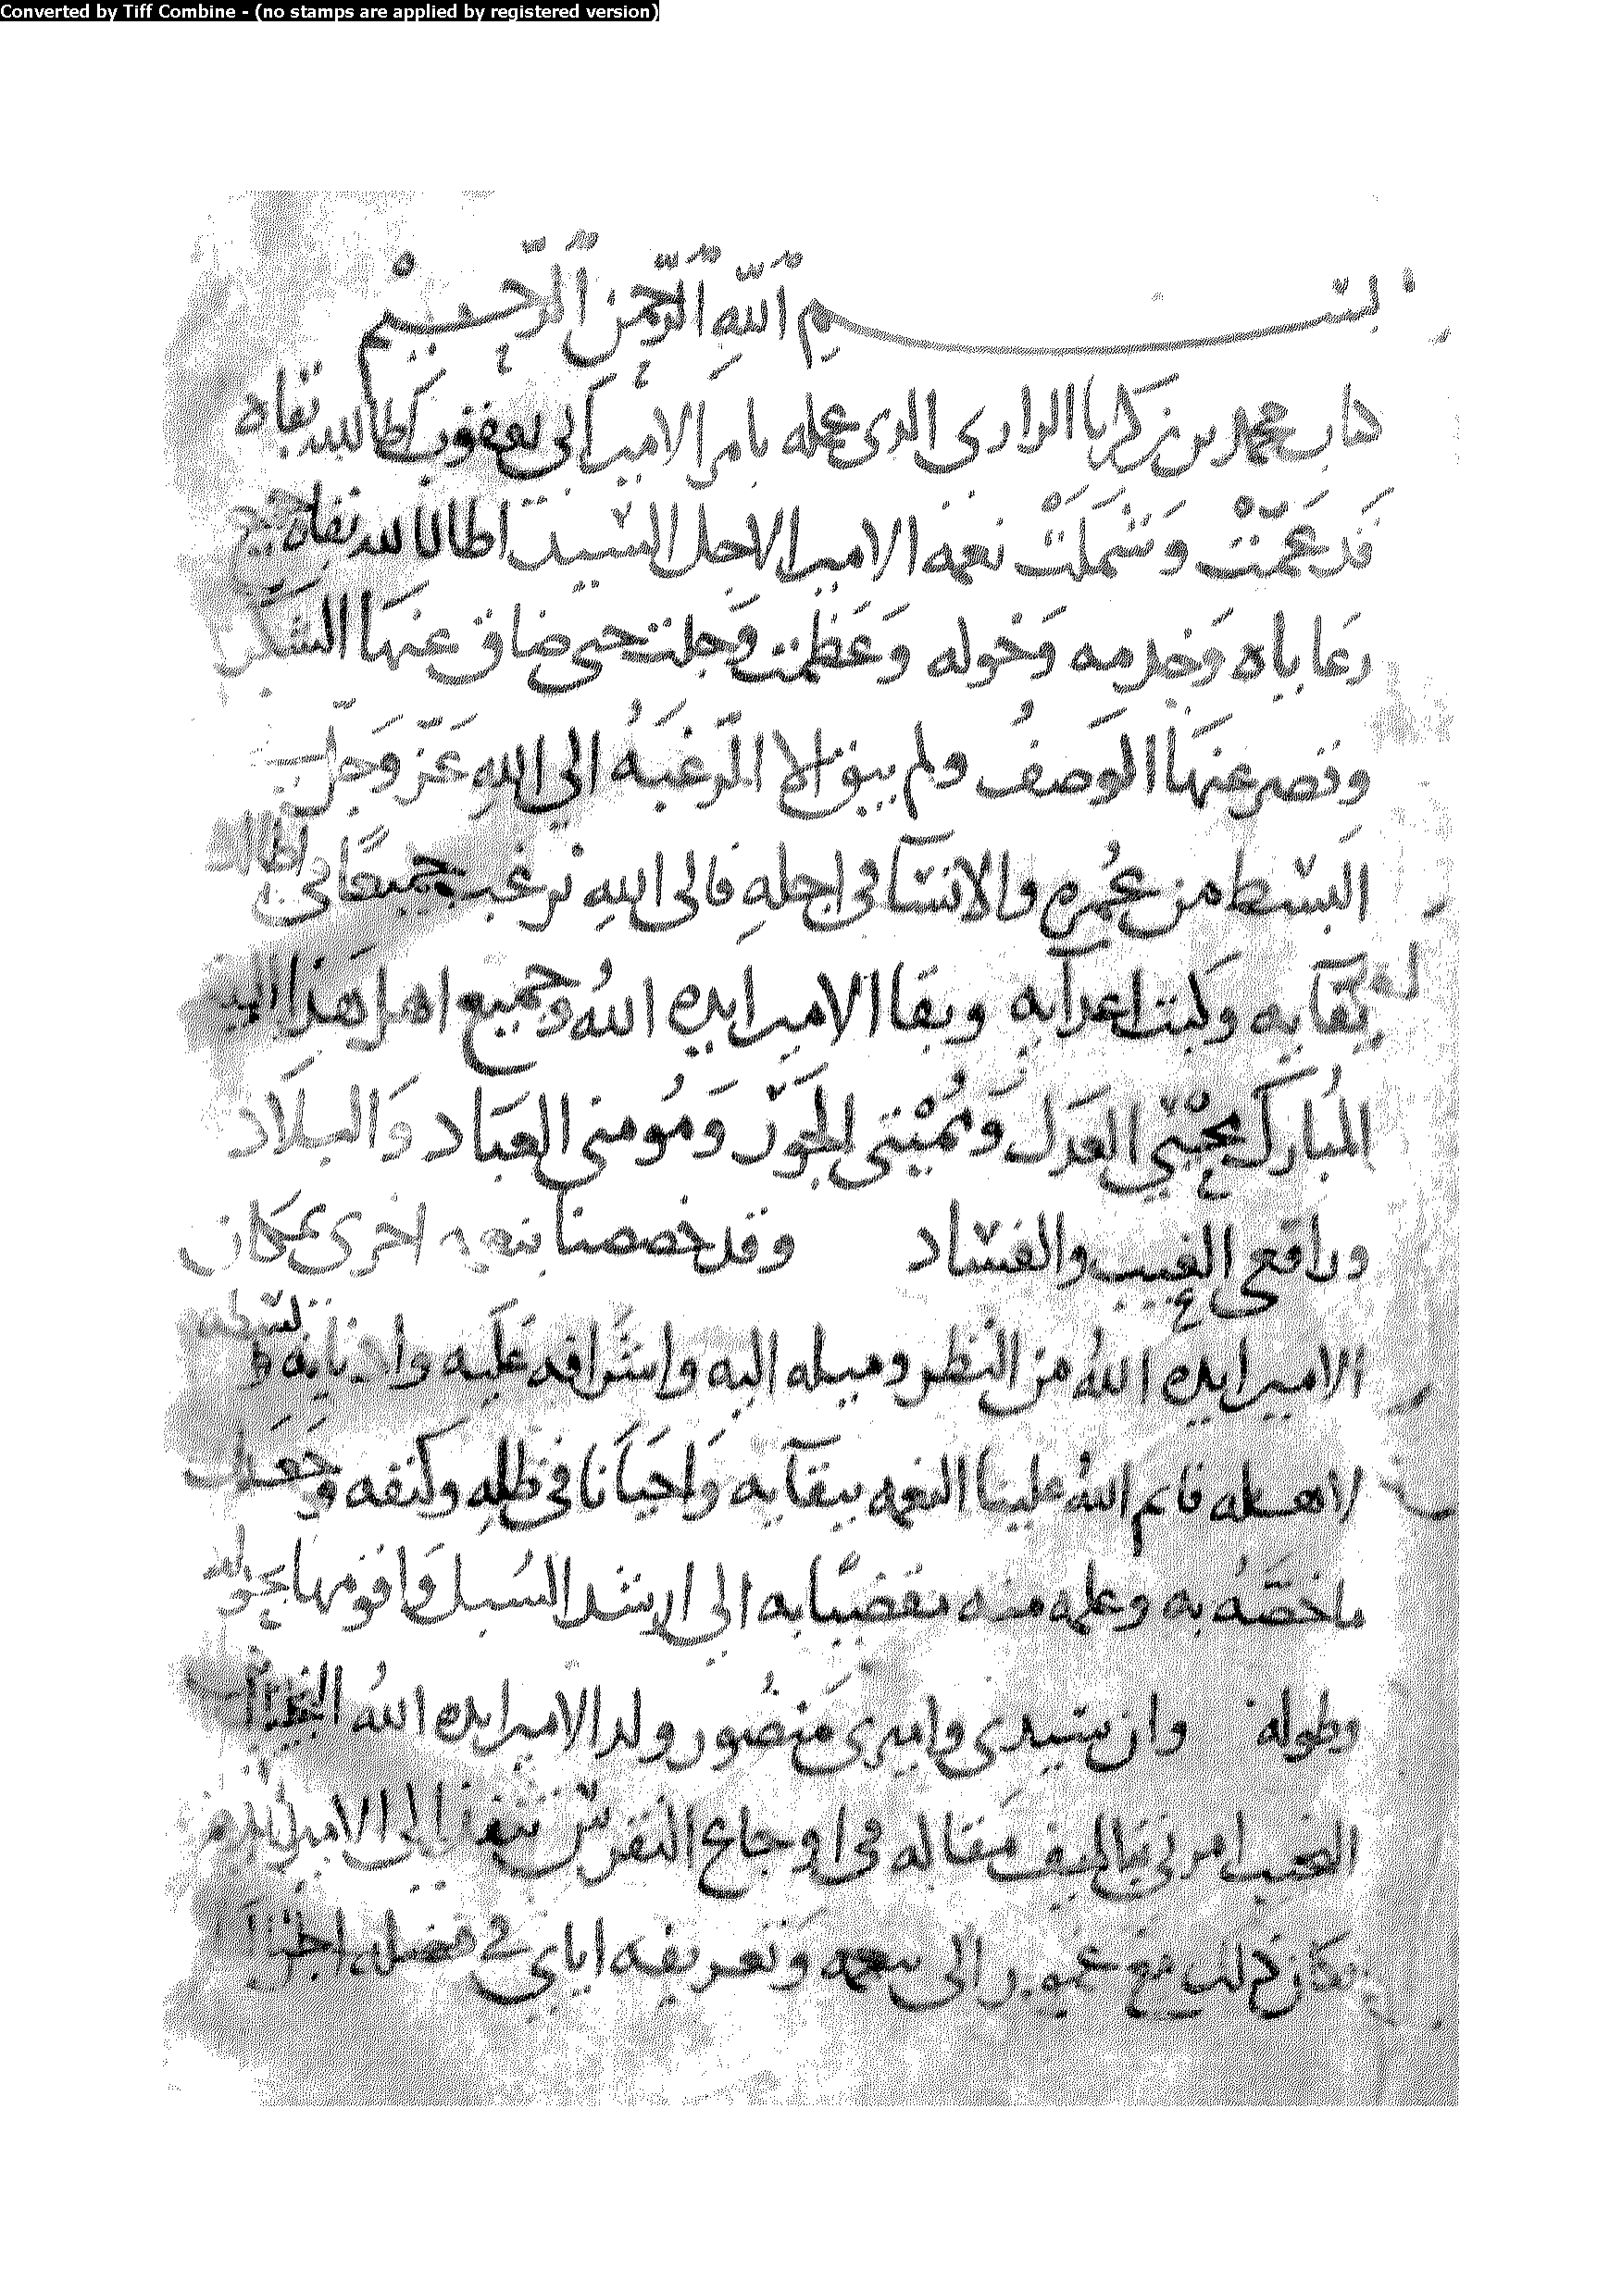 Converted by Tiff Combine - (no stamps are applied by registered version)
بسم الله الرحمن الرحيم
كتاب محمد بن زكريا الرازى الذى عمله بامر الامير ابى يعقوب اطال الله بقاه
قد عمّت وشملت نعمه الامير الاجل السيد اطال الله بقاه جميع
رعاياه وخدمه وخوله وعظمت وجلت حتى ضاق عنها الشكر
وقصر عنها الوصف ولم يبق الا الرغبه الى الله عز وجل
البسط من عمره والانسآ فى اجله فالى الله نرغب جميعا فى اطاله
بقآيه وكبت اعدآيه وبقا الامير ايده الله وجميع اهل هذا البيت
المبارك محيى العدل ومميتى الجور ومومنى العباد والبلاد
ورافعى العيب والفساد وقد خصصنا بنعمه اخرى بمكان
الامير ايده الله من النظر وميله اليه واشرافه عليه وادنايه و
لاهله فاتم الله علينا النعمه ببقآيه واحيانا فى ظله وكنفه وجعل
ما خصه به وعلمه منه مفضيا به الى ارشد السبل واقومها بحوله
وطوله وان سيدى واميرى منصور ولد الامير ايده الله
النجيب امرنى بتاليف مقاله فى اوجاع النقرس الى الامير ايده
فكان ذلك مع الى نعمه وتعريفه اياى فى فضل